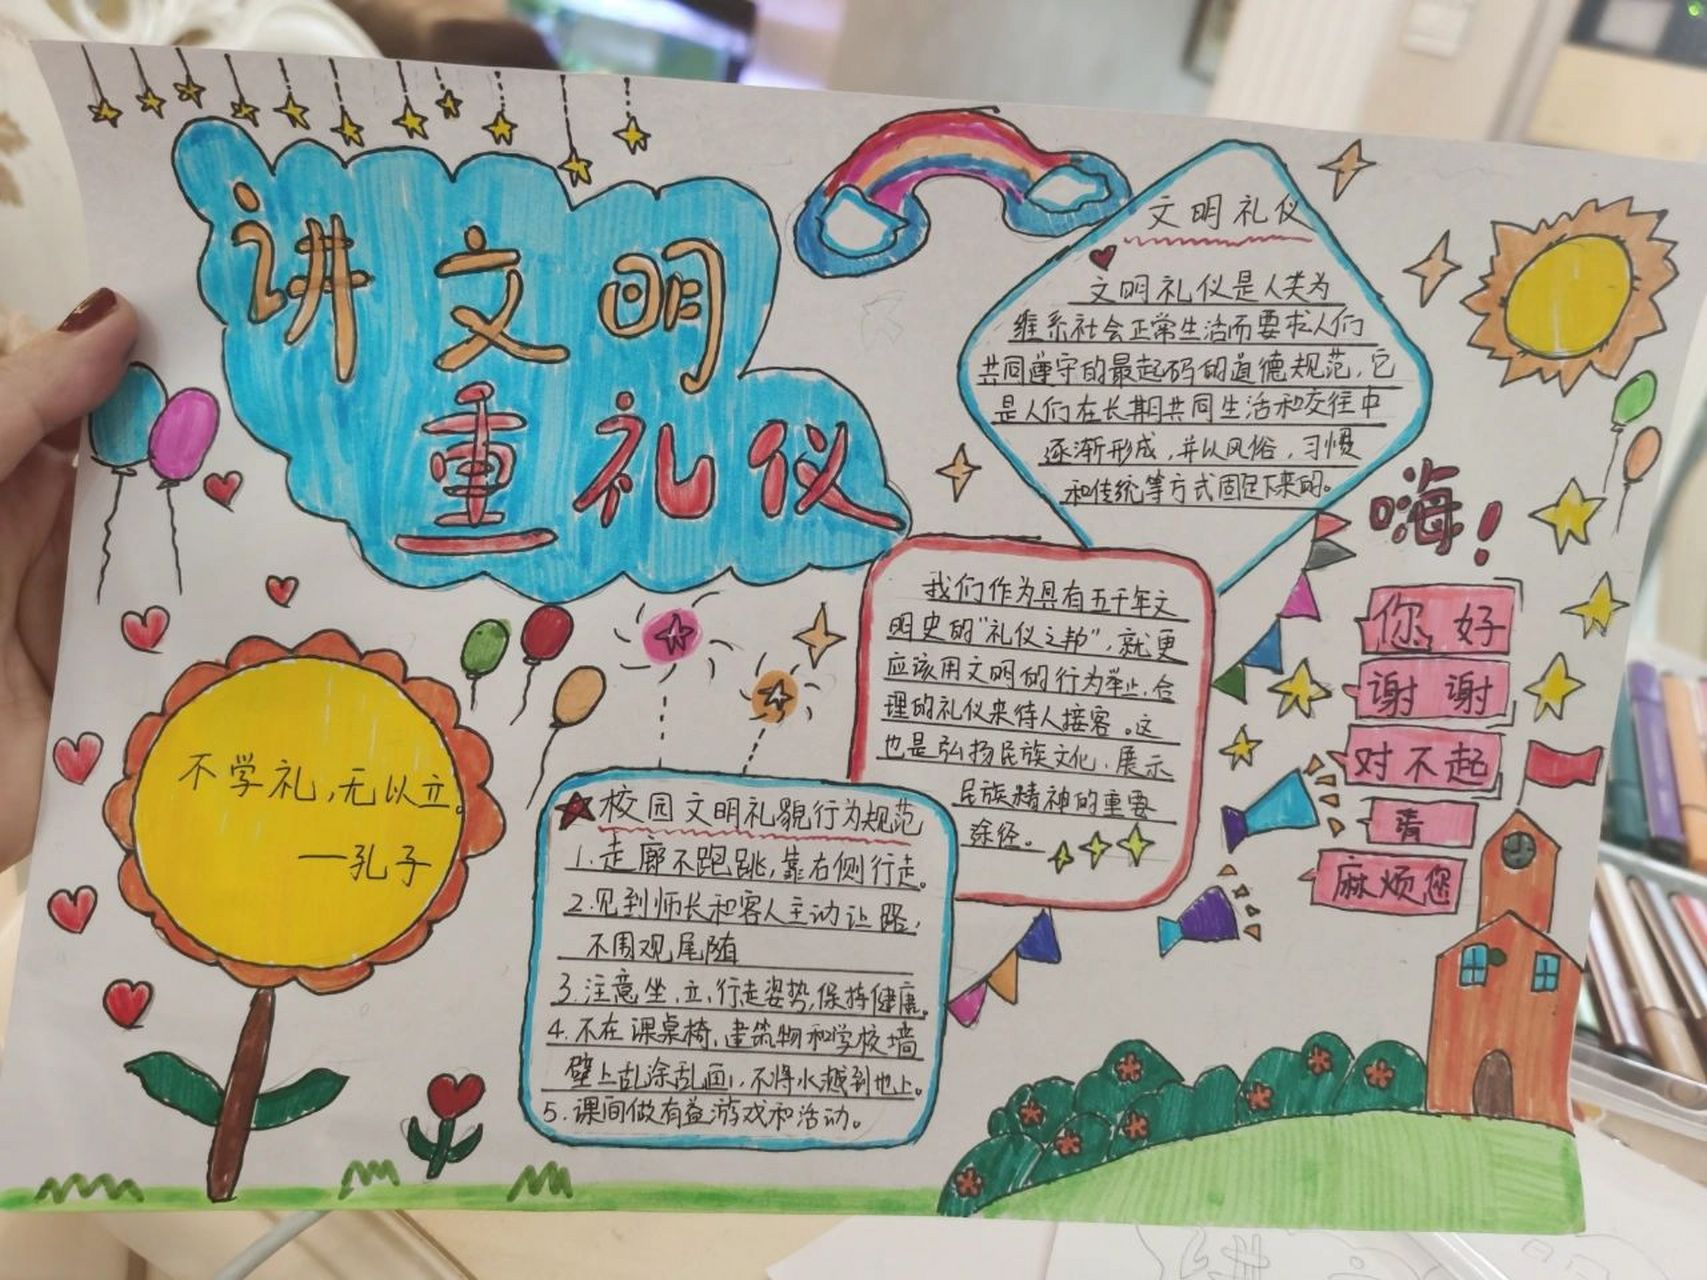 讲文明
重礼仪
文明礼仪
文明礼仪是人类为
维系社会正常生活而要求人们
共同遵守的最起码的道德规范，它
是人们在长期共同生活和交往中
逐渐形成，并以风俗，习惯
和传统等方式固定下来的。
嗨！
你好
谢谢
对不起
请
麻烦您
我们作为具有五千年文
明史的“礼仪之邦”，就更
应该用文明的行为举止，合
理的礼仪来待人接客。这
也是弘扬民族文化，展示
民族精神的重要
途径。
不学礼，无以立。
—孔子
校园文明礼貌行为规范
1.走廊不跑跳，靠右侧行走。
2.见到师长和客人主动让路，
不围观尾随
3.注意坐、立、行走姿势，保持健康。
4.不在课桌椅，建筑物和学校墙
壁上乱涂乱画，不将水越到地上。
5.课间做有益游戏和活动。